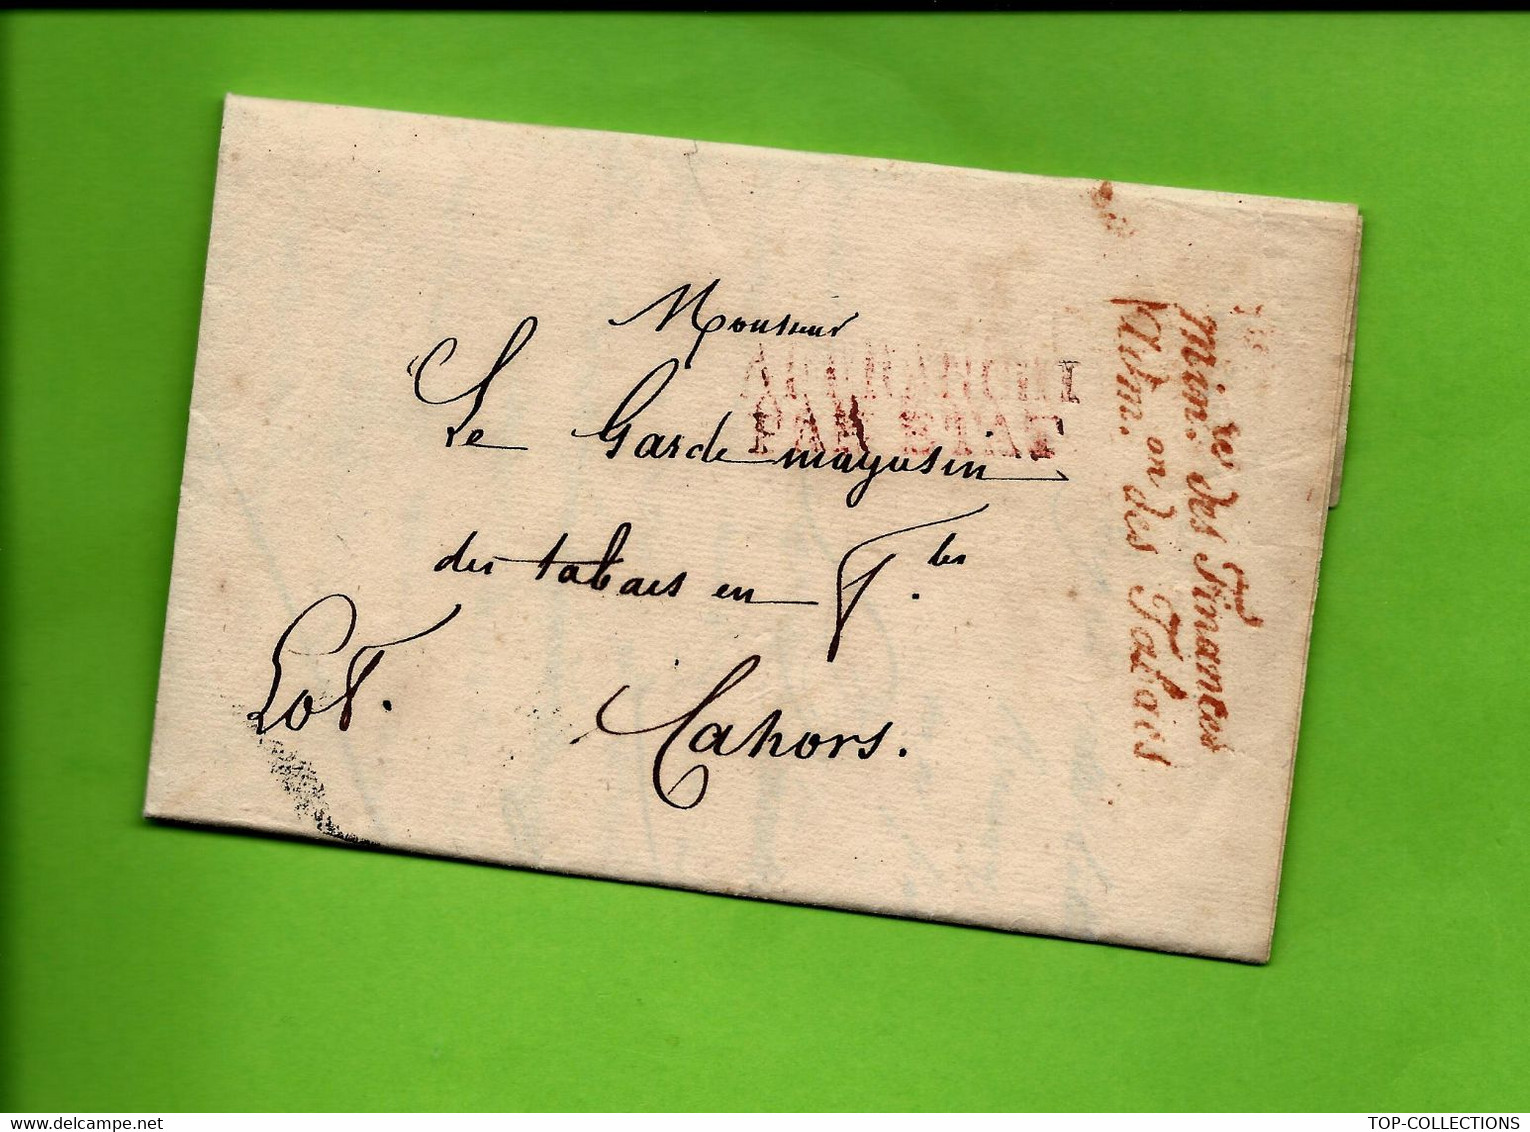 Monsieur
Le Garde magasin
des tabacs en f.les
Lot. Cahors.
AFFRANCHI
PAR ETAT
Min.re des Finances
Adm.on des Tabacs
TOP-COLLECTIONS